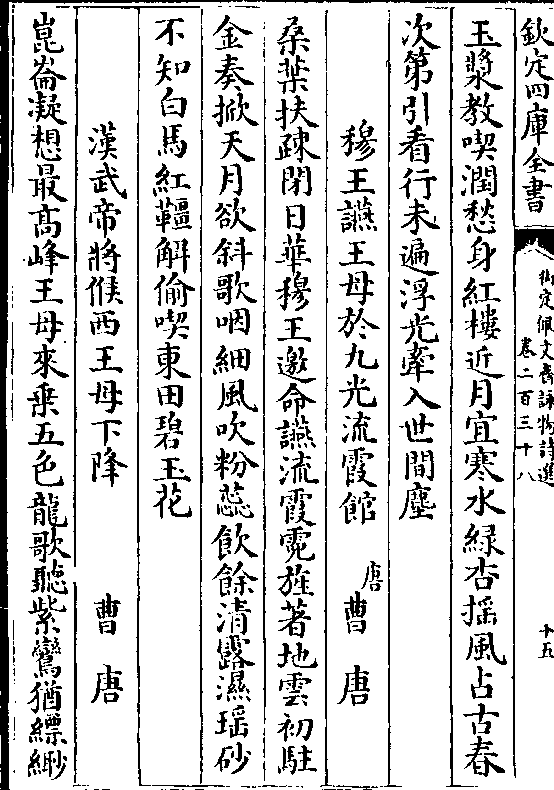 欽定四庫全書
御定佩文齋詠物詩選
卷二百三十八
十五
玉漿教喫潤愁身紅樓近月宜寒水緑杏揺風占古春
次第引看行未遍浮光牽入世間塵
穆王讌王母於九光流霞館　唐　曹唐
桑葉扶疎閉日華穆王邀命讌流霞霓旌著地雲初駐
金奏掀天月欲斜歌咽細風吹粉蕊飲餘清露濕瑶砂
不知白馬紅韁解偷喫東田碧玉花
漢武帝將候西王母下降　曹唐
崑崙凝想最髙峰王母來乗五色龍歌聽紫鸞猶縹緲